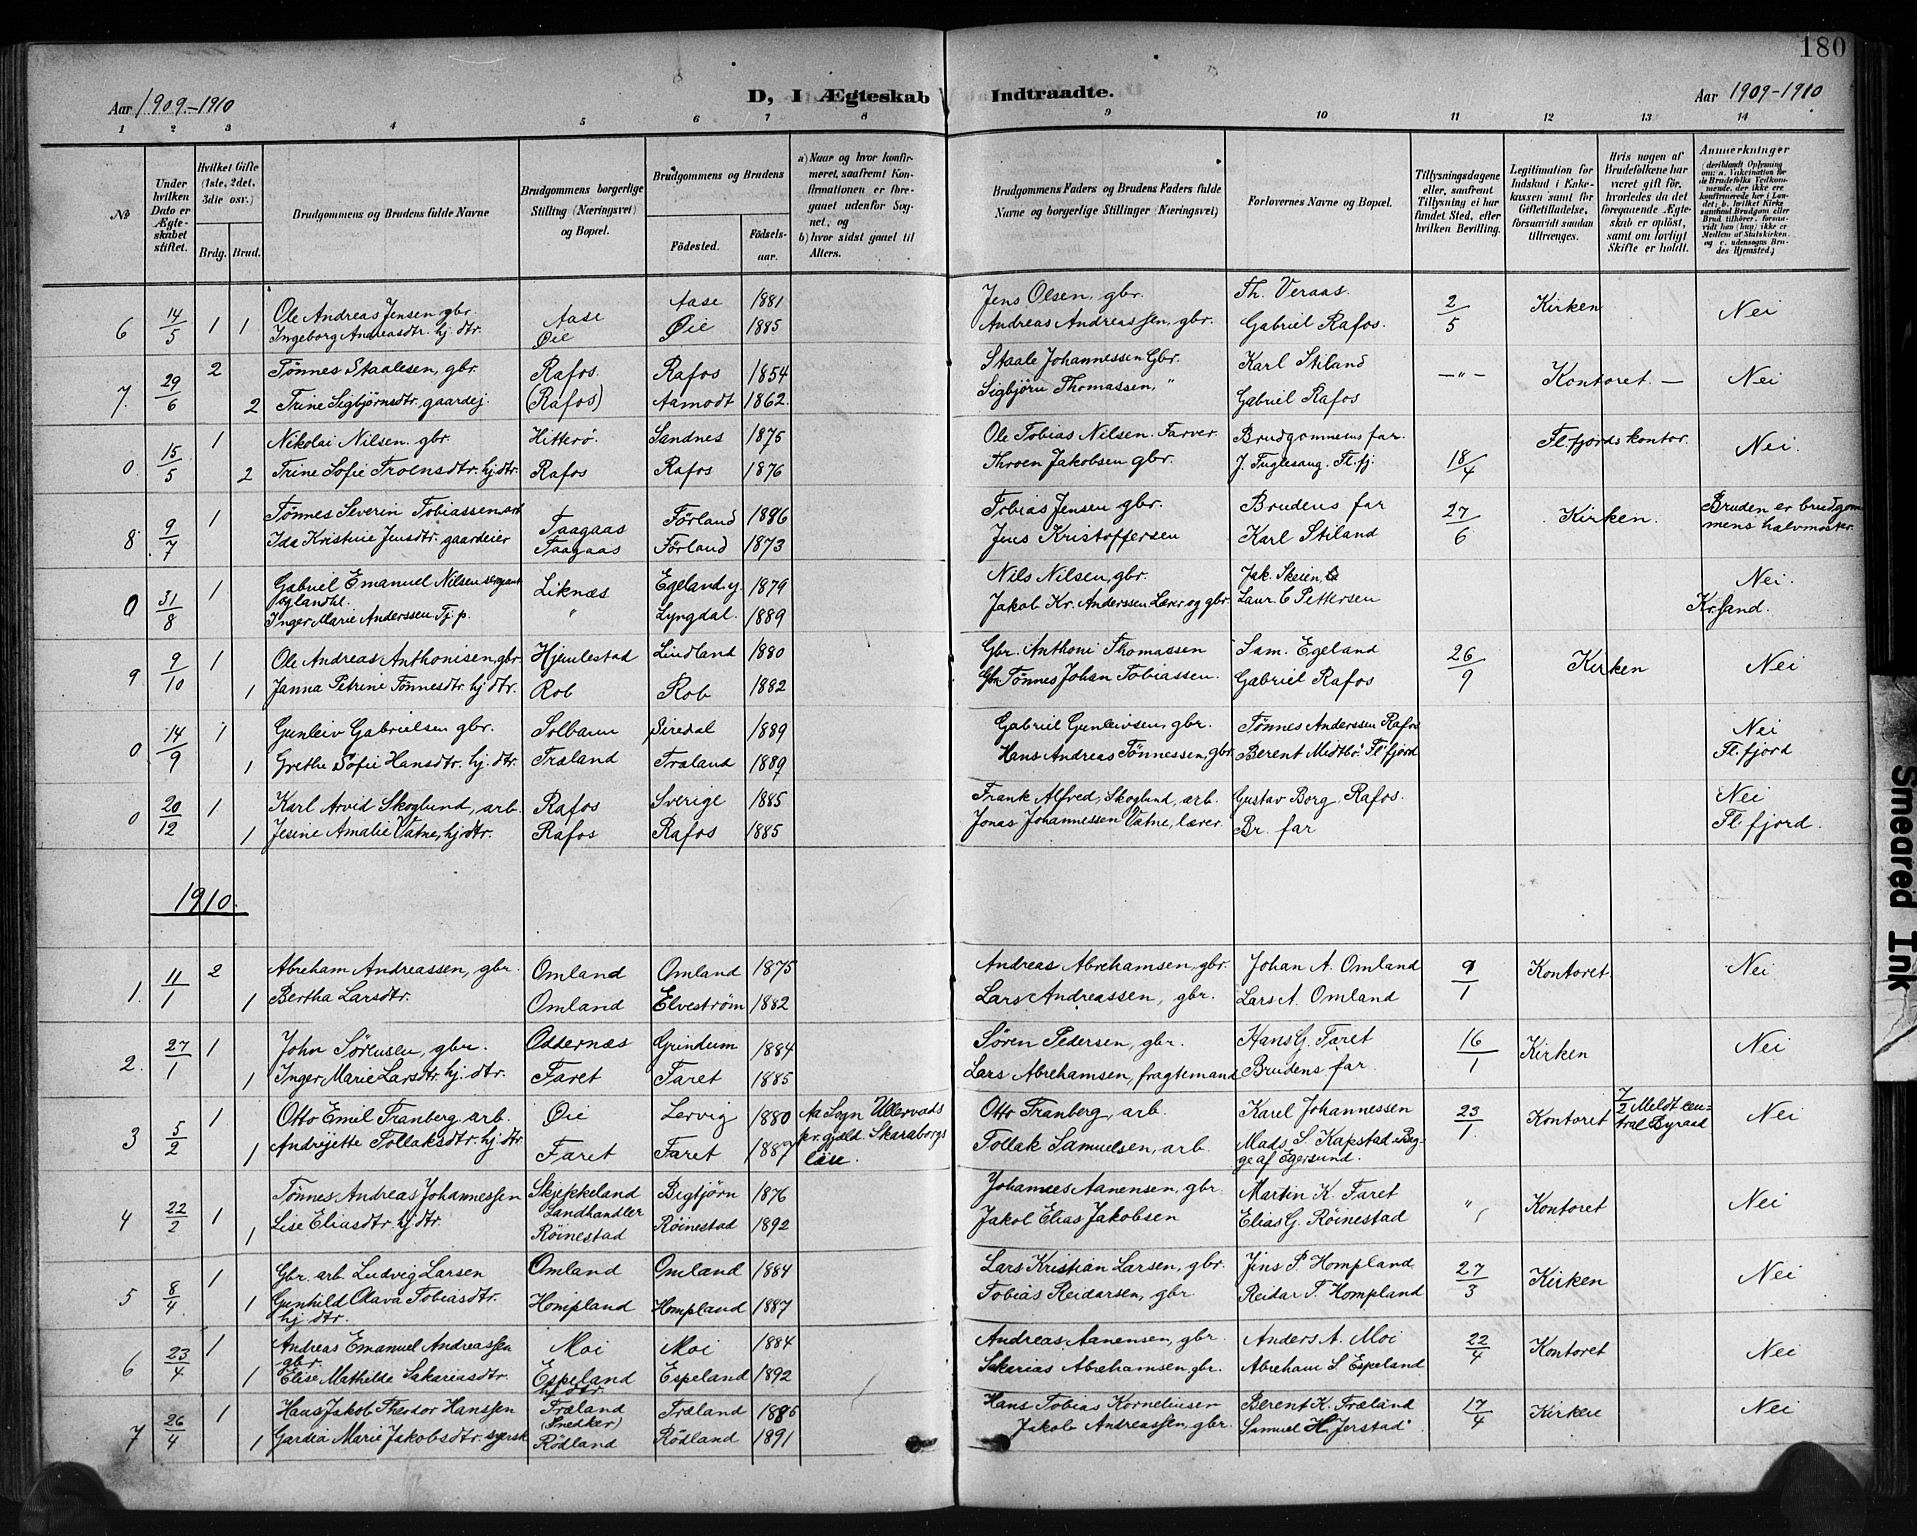 180
Aar 1909-1910
D, I Ægteskab Indtraadte.
Aar 1909-1910
1 2 3 4 5 6 7 8 9 10 11 12 13 14
No
Under hvilken Dato er Ægteskabet stiftet.
Hvilket Gifte (1ste, 2det, 3die osv.)
Brdg. Brud.
Brudgommens og Brudens fulde Navne
Brudgommens borgerlige Stilling (Næringsvei) og Bopæl.
Brudgommens og Brudens
Födested.
Födselsaar.
a) Naar og hvor konfirmeret, saafremt Konfirmationen er foregaaet udenfor Sognet, og
b) hvor sidst gaaet til Alters.
Brudgommens Faders og Brudens Faders fulde Navne og borgerlige Stillinger (Næringsvei)
Forlovernes Navne og Bopæl.
Tillysningsdagene eller, saafremt Tillysning ei har fundet Sted, efter hvilken Bevilling.
Legitimation for Indskud i Enkekassen samt for Giftetilladelse, forsaavidt saadan tiltrænges.
Hvis nogen af Brudefolkene har været gift før, hvorledes da det foregaaende Ægteskab er opløst, samt om lovligt Skifte er holdt.
Anmerkninger
6 14/5 1 1 Ole Andreas Jensen gbr. Aase Aase 1881 Jens Olsen, gbr. Th. Veraas. 2/5 Kirken Nei
Ingeborg Andreasdtr. hj. dtr. Øie Øie 1885 Andreas Andreassen, gbr. Gabriel Rafos.
7. 29/6 2 Tønnes Staalesen, gbr. Rafos. Rafos 1854 Staale Johannessen Gbr. Karl Stiland —"— Kontoret — Nei
2 Trine Sigbjørnsdtr. gaardej. (Rafos) Aamodt 1862. Sigbjörn Thomassen, " Gabriel Rafos
0. 15/5 1 Nikolai Nilsen. gbr. Hitterö. Sandnes 1875 Ole Tobias Nilsen. Farver. Brudgommens far. 18/4 Fl.fjords kontor. Nei.
2 Trine Sofie Troensdtr. hj. dtr. Rafos Rafos 1876 Throen Jakobsen gbr. J. Fuglesang. Fl.fj.
8. 9/7 1 Tønnes Severin Tobiassen arb Taagaas Förland 1886 Tobias Jensen gbr. Brudens far 27/6 Kirken. Bruden er brudgommens halvmoster.
Ida Kristine Jensdtr. gaardeier Taagaas Förland 1873 Jens Kristoffersen Karl Stiland
0 31/8 1 Gabriel Emanuel Nilsen sergeant Liknæs Egeland. y 1879 Nils Nilsen, gbr. Jak. Skeien, Nei.
Inger Marie Anderssen Tj. p. " Lyngdal. 1889 Jakob Kr. Anderssen Lærer og gbr. Laur. C Pettersen Kr.sand.
9 9/10 1 Ole Andreas Anthonisen, gbr Hjemlestad Lindland 1880 Gbr. Anthoni Thomassen Sam. Egeland 26/9 Kirken Nei
1 Janna Petrine Tønnesdtr. hj. dtr. Rob Rob 1882 Gbr. Tønnes Johan Tobiassen. Gabriel Rafos
0 14/9 1 Gunleiv Gabrielsen gbr. Solbann Siredal 1889 Gabriel Gunleivsen, gbr. Tønnes Anderssen Rafos Nei
1 Grethe Sofie Hansdtr. hj. dtr. Træland Træland 1889 Hans Andreas Tønnessen, gbr. Berent Midtbö. Fl'fjord Fl.fjord
0 20/12 1 Karl Arvid Skoglund, arb. Rafos Sverige 1885 Frank Alfred, Skoglund, arb. Gustav Borg. Rafos. Nei
1 Jesine Amalie Vatne, hj. dtr. Rafos Rafos 1885 Jonas Johannessen Vatne, lærer. Br. far Fl.fjord.
1910.
1. 11/1 2 Abreham Andreassen, gbr. Omland Omland 1875 Andreas Abrehamsen, gbr. Johan A. Omland 9/1 Kontoret. Nei
1 Bertha Larsdtr. Omland Elveström 1882 Lars Andreassen, gbr. Lars A. Omland
2. 27/1 1 John Sörensen, gbr. Oddernæs Grindum 1884 Sören Pedersen, gbr. Hans G. Faret 16/1 Kirken Nei
1 Inger Marie Larsdtr. hj. dtr. Faret Faret 1885 Lars Abrehamsen, fragtemand Brudens far.
3 5/2 1 Otto Emil Franberg, arb. Øie Lervig 1880 Aa Sogn Ullervads Otto Franberg, arb. Karel Johannessen 23/1. Kontoret 7/2 Meldt central Byraad Nei
1 Andrijette Tollaksdtr. hj. dtr Faret Faret 1887 pr. gjæld. Skaraborgs läse. Tollak Samuelsen, arb. Mads S. Kapstad. Begge af Egersund.
4 22/2 1 Tønnes Andreas Johannessen Skjekkeland Landhandler Bigtjörn 1876 Johannes Aanensen, gbr. Martin K. Faret " Kontoret Nei
1 Lise Eliasdtr. hj. dtr. Röinestad Röinestad 1892 Jakob Elias Jakobsen Elias G. Röinestad
5 8/4 1 Gbr. arb. Ludvig Larsen Omland Omland 1884 Lars Kristian Larsen, gbr. Jens P. Hompland 27/3 Kirken Nei
1 Gunhild Olava Tobiasdtr. hj. dtr. Hompland Hompland 1887 Tobias Reidarsen, gbr Reidar T. Hompland
6 23/4 1 Andreas Emanuel Andreassen gbr. Moi Moi 1884 Andreas Aanensen, gbr. Anders A. Moi 22/4 Kontoret Nei
1 Elise Mathilde Sakariasdtr. Espeland hj. dtr. Espeland 1892 Sakarias Abrahamsen, gbr. Abreham S. Espeland
7 26/4 1 Hans Jakob Theodor Hanssen Træland (Snedker) Træland 1885 Hans Tobias Korneliusen Berent K. Træland 17/4 Kirken Nei
1 Gardea Marie Jakobsdtr. syersk Rödland Rödland 1891 Jakob Andreassen, gbr. Samuel H. Jerstad
Smeared Ink